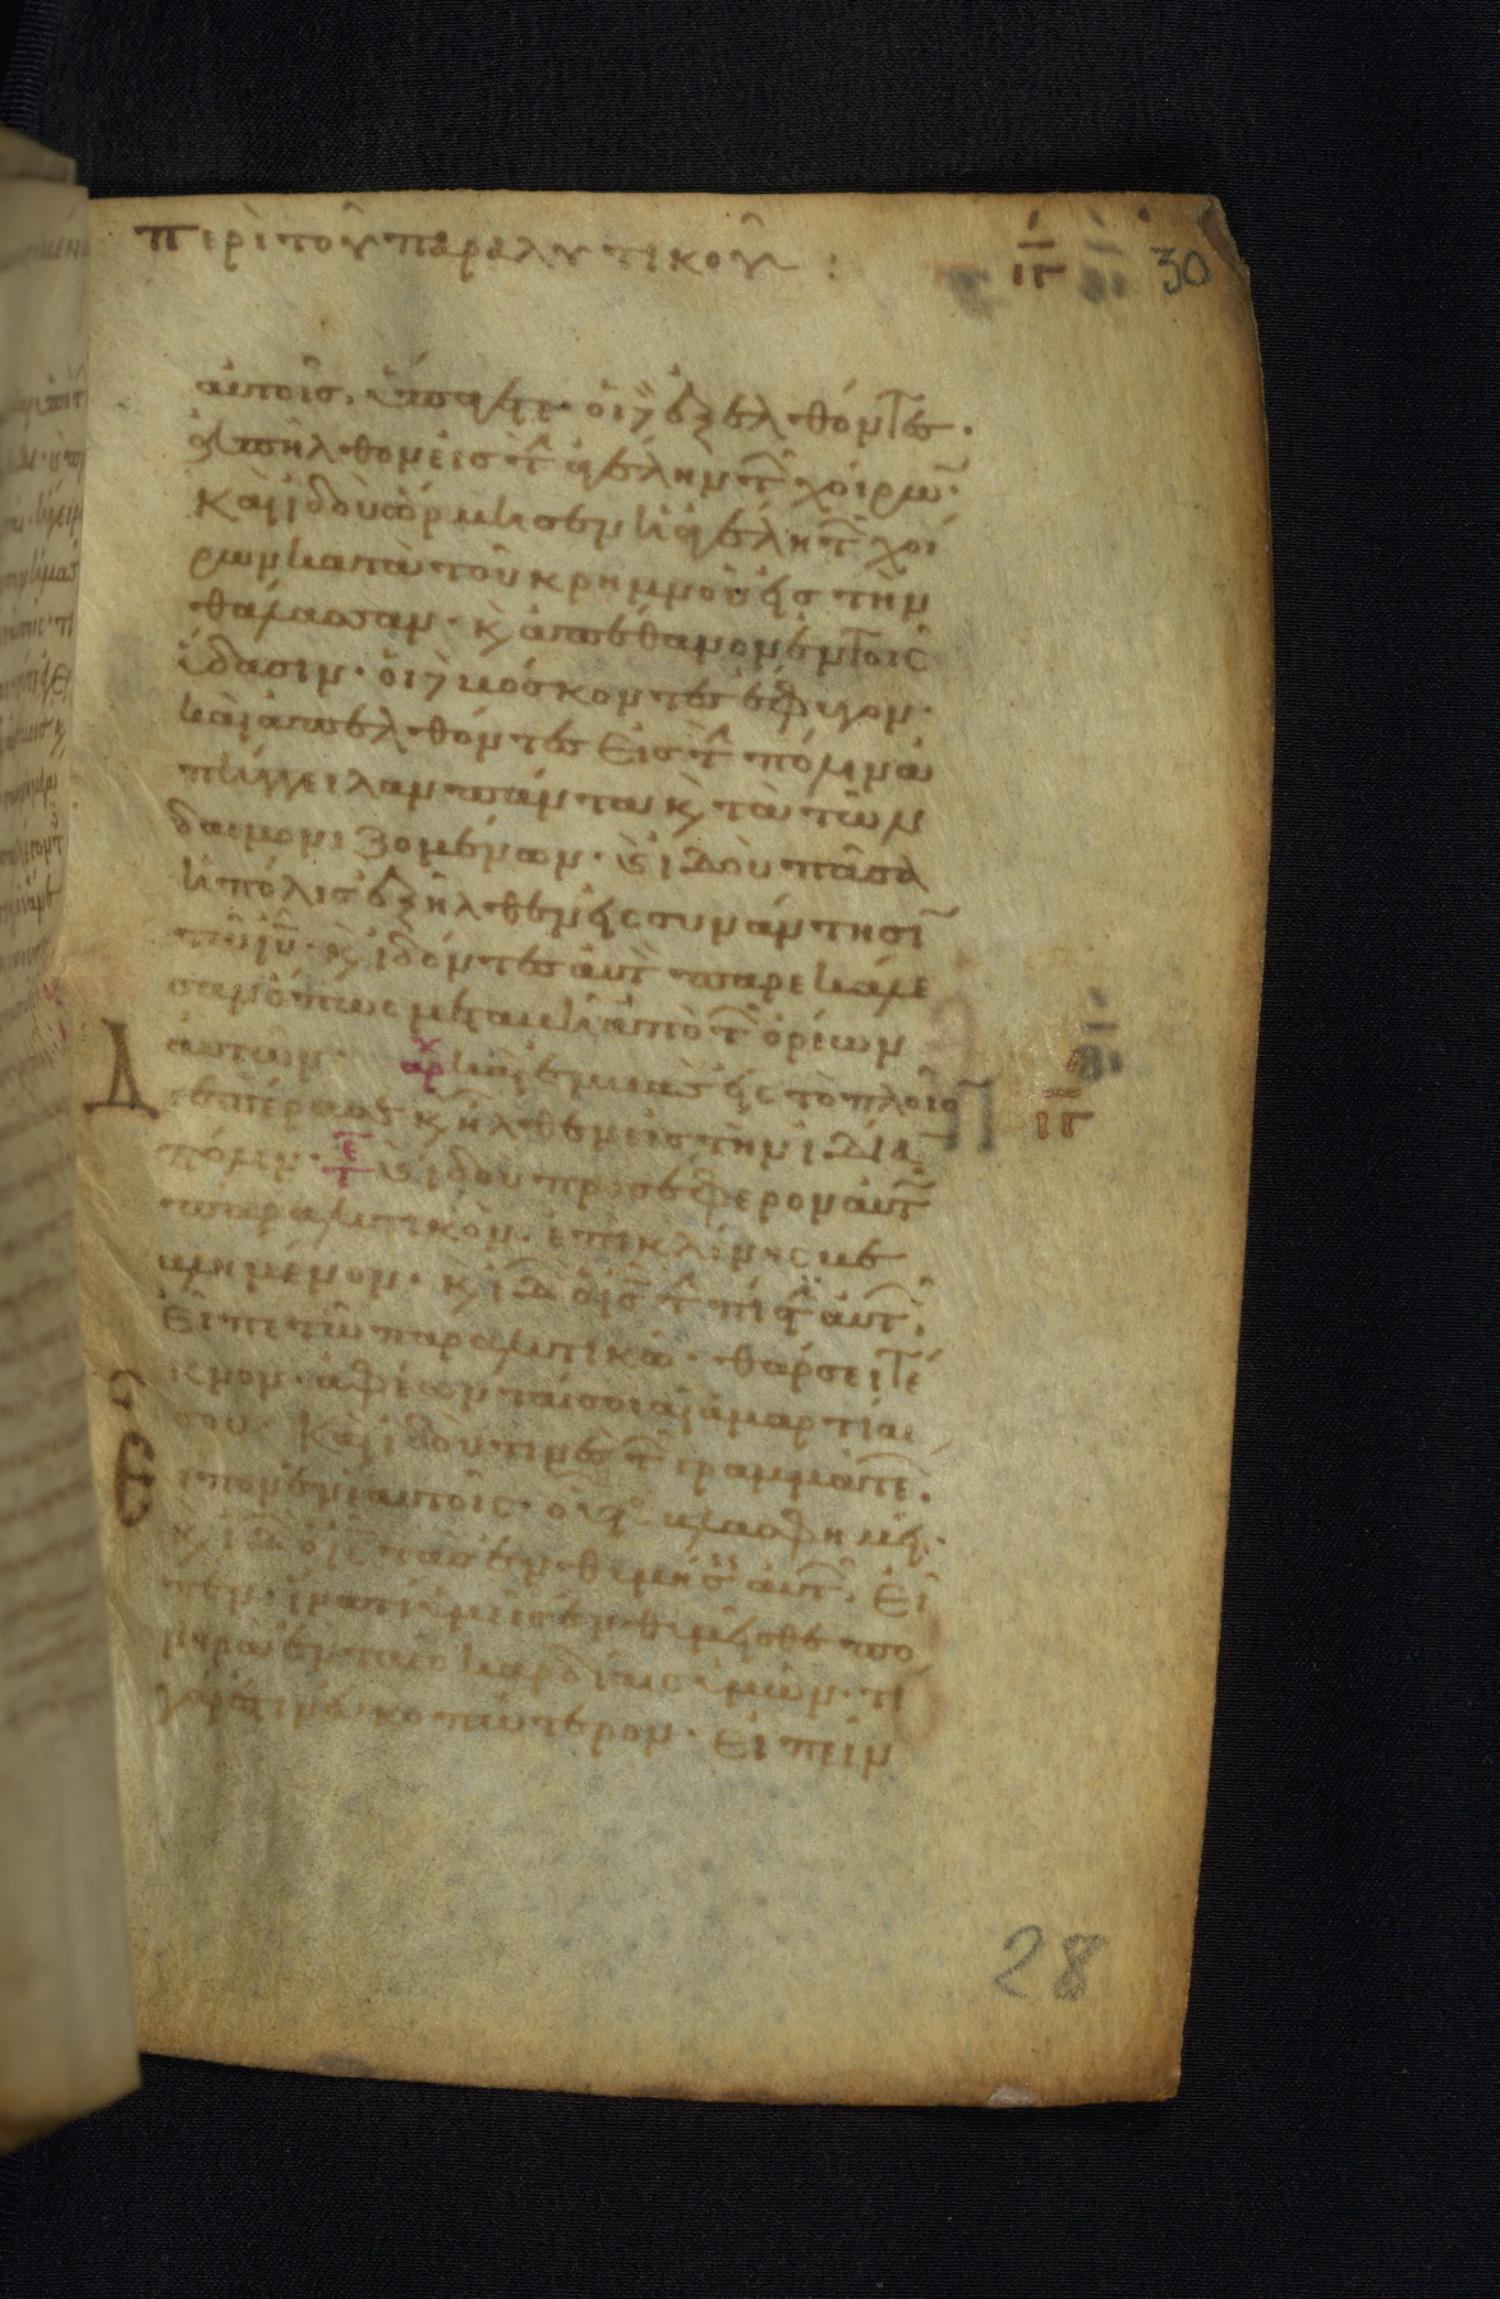 περὶ τοῦ παραλυτικοῦ :
ιγ
30
αὐτοῖς. ὑπάγετε· οἱ δὲ ἐξελθόντες.
ἀπῆλθον εἰς τ ἀγέλην τ χοίρω·
Καὶ ἰδοὺ ὥρμησεν ἡ ἀγέλη τ χοί
ρων κατὰ τοῦ κρημνοῦ εἰς τὴν
θάλασσαν· κ ἀπέθανον ἐν τοῖς
ὕδασιν· οἱ δὲ βόσκοντες ἔφυγον·
καὶ ἀπελθόντες εἰς τ πόλιν ἀ
πήγγειλαν πάντα κ τὰ τῶν
δαιμονιζομένων· κ ἰδοὺ πᾶσα
ἡ πόλις ἐξῆλθεν εἰς συνάντησι
τῶ ιυ· κ ἰδόντες αὐτ παρεκάλε
σαν ὅπως μεταβῆ ἀπὸ τ ὁρίων
αὐτῶν· αρχ καὶ ἐμβὰς εἰς τὸ πλοῖο
Δ
ιγ
διεπέρασε κ ἦλθεν εἰς τὴν ἰδία
πόλιν· τε κ ἰδοὺ προσέφερον αὐτ
παραλυτικὸν. ἐπὶ κλίνης βε
βλημένον· κ ἰδ ὁ ις τ πίστ αὐτ,
εἶπε τῶ παραλυτικῶ· θάρσει τέ
κνον· ἀφέωνταί σοι αἱ ἁμαρτίαι
σου· Καὶ ἰδού τινὲς τ γραμματέ.
Ε
ἶπον ἐν ἑαυτοῖς· οὗτο βλασφημεῖ·
κ ἰδ ὁ ις τὰς ἐνθυμήσ αὐτ, εἶ
πεν· ἱνατί ὑμεῖς ἐνθυμεῖσθε πο
νηρὰ ἐν ταῖς καρδίαις ὑμῶν· τί
γάρ ἐστιν εὐκοπώτερον· εἰπεῖν
28